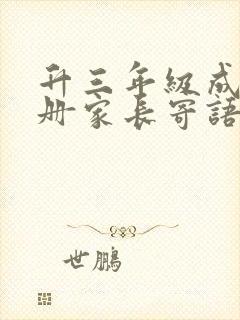 升三年級成
册家長寄語
世鵬